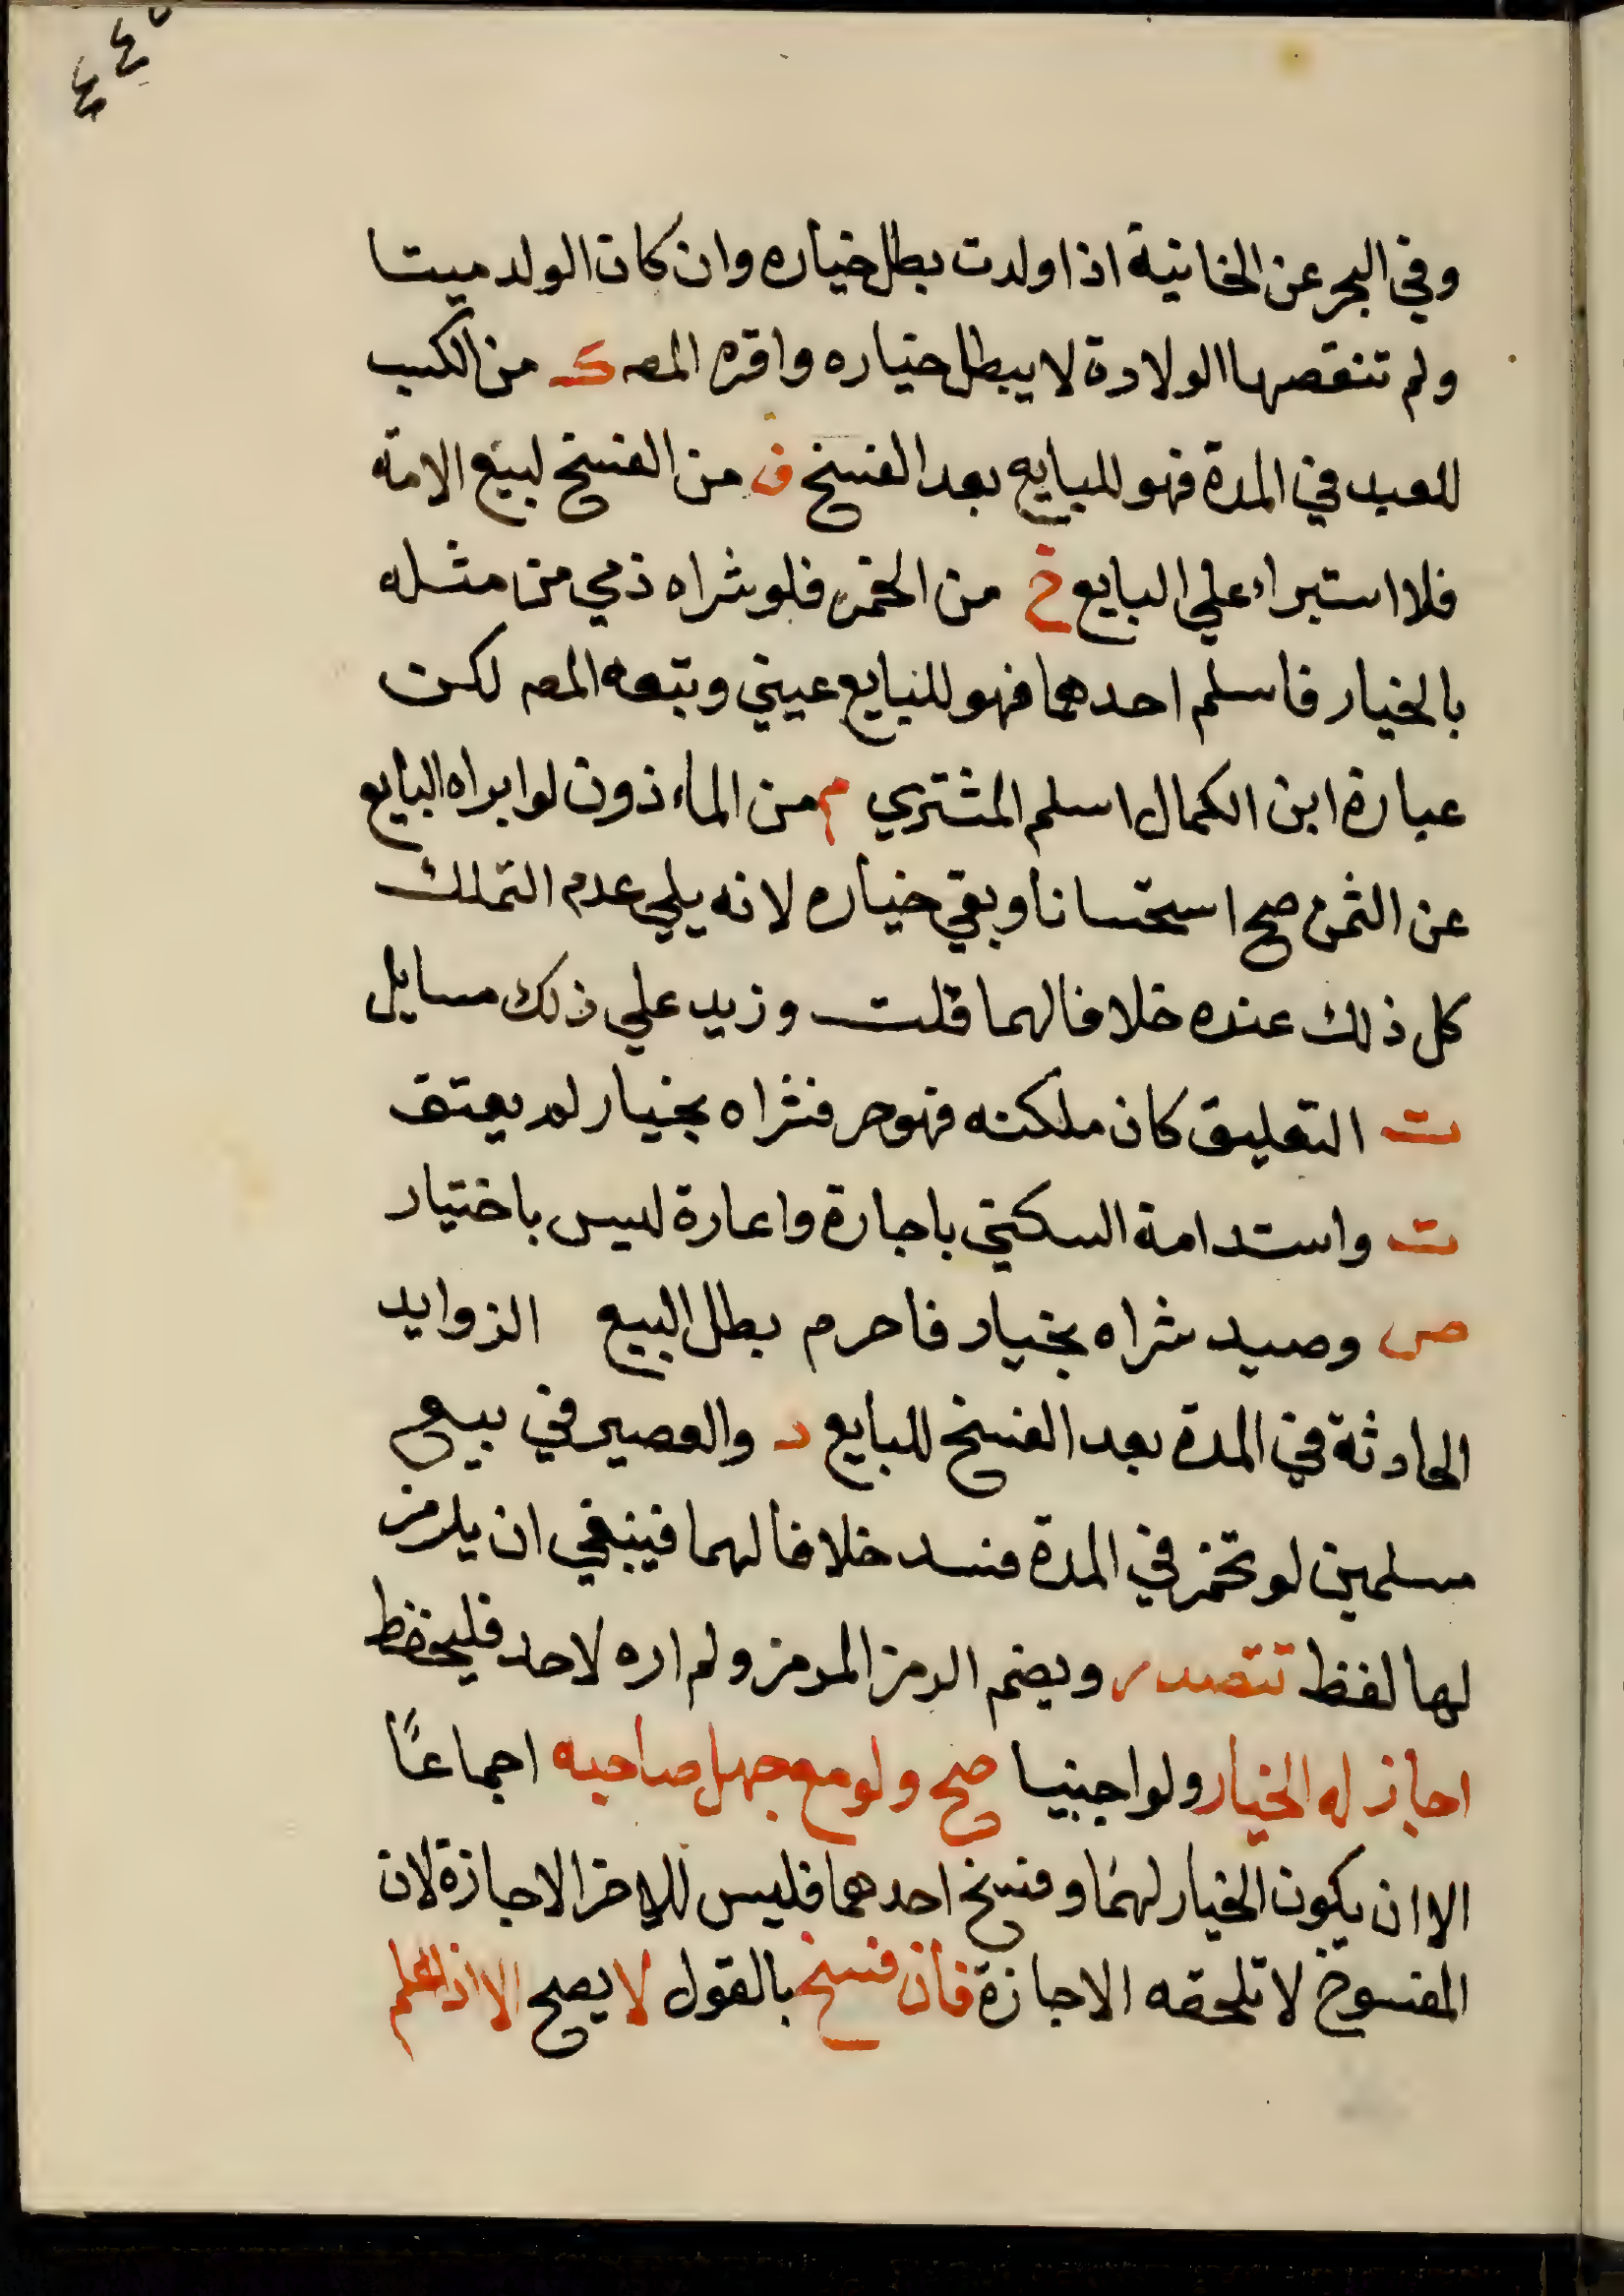 ٤٤٥
وفي البحر عن الخانية اذا ولدت بطل خياره وان كان الولد ميتا
ولم تنقصها الولادة لا يبطل خياره واقره المصـ ك من الكسب
للعبد في المدة فهو للبايع بعد الفسخ ف من الفسخ لبيع الامة
فلا استبراء علي البايع خ من الخمر فلو شراه ذمي من مثله
بالخيار فاسلم احدهما فهو للبايع عيني وتبعه المصـ لكن
عبارة ابن الكمال اسلم المشتري م من الماءذون لو ابراه البايع
عن الثمن صح استحسانا وبقي خياره لانه يلي عدم التملك
كل ذلك عنده خلافا لهما قلت وزيد علي ذلك مسايل
ت التعليق كان ملكته فهو حر فشراه بخيار لم يعتق
ت واستدامة السكني باجارة واعارة ليس باختيار
ص وصيد شراه بخيار فاحرم بطل البيع الزوايد
الحادثة في المدة بعد الفسخ للبايع د والعصير في بيع
مسلمين لو تخمر في المدة فسد خلافا لهما فينبغي ان يلرمز
لها لفظ تتصدر ويضم الرمز المرمز ولم اره لاحد فليحفظ
اجاز له الخيار ولو اجنبيا صح ولو مع جهل صاحبه اجماعًا
الا ان يكون الخيار لهما وفسخ احدهما فليس للاخر الاجازة لان
المفسوخ لا تلحقه الاجازة فان فسخ بالقول لا يصح الا اذا علم